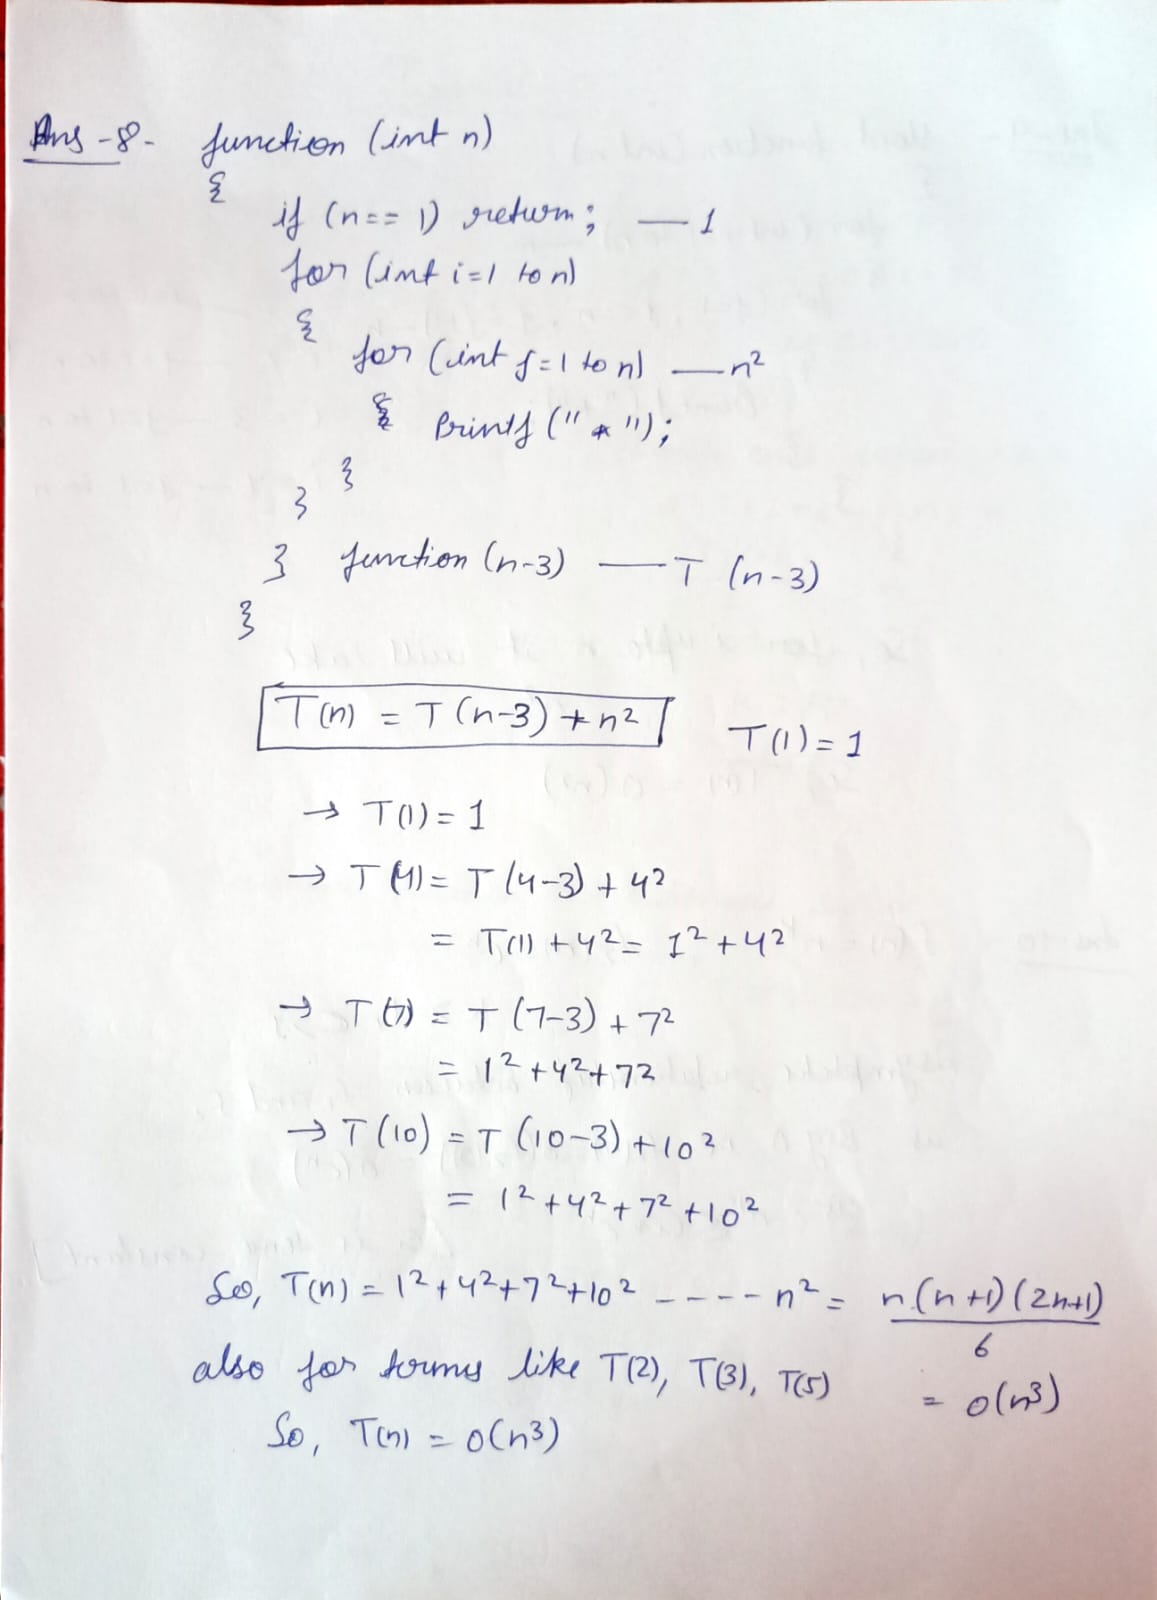 Ans-8- function (int n)
{
if (n== 1) return; — 1
for (int i=1 to n)
{
for (int j=1 to n) — n²
{ Printf ("*");
}
}
} function (n-3) — T (n-3)
}
T(n) = T(n-3) + n² T(1) = 1
→ T(1) = 1
→ T(4) = T(4-3) + 4²
= T(1) + 4² = 1² + 4²
→ T(7) = T(7-3) + 7²
= 1² + 4² + 7²
→ T(10) = T(10-3) + 10²
= 1² + 4² + 7² + 10²
So, T(n) = 1² + 4² + 7² + 10² - - - - n² = n(n+1)(2n+1)/6
also for terms like T(2), T(3), T(5) = O(n³)
So, T(n) = O(n³)